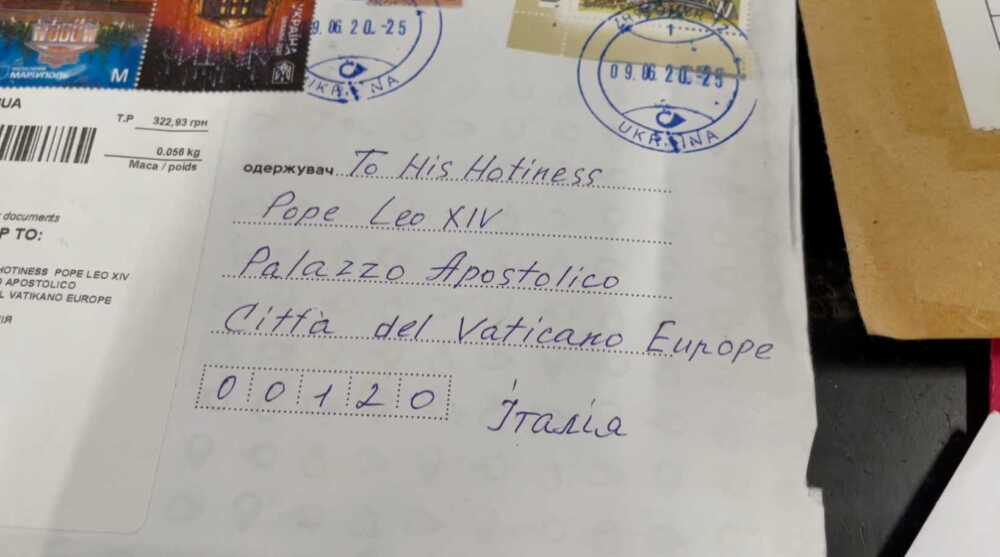 МАРІУПОЛЬ M
УКРАЇНА
9. 06. 2 0. -2 5
UKRAINA
0 9. 06. 2 0. -2 5
UKRAINA
UA
Т.Р 322,93 грн
0.056 kg
Маса / poids
documents
P TO:
HOTINESS POPE LEO XIV
O APOSTOLICO
L VATIKANO EUROPE
ІЯ
одержувач To His Hotiness
Pope Leo XIV
Palazzo Apostolico
Città del Vaticano Europe
0 0 1 2 0 Італія